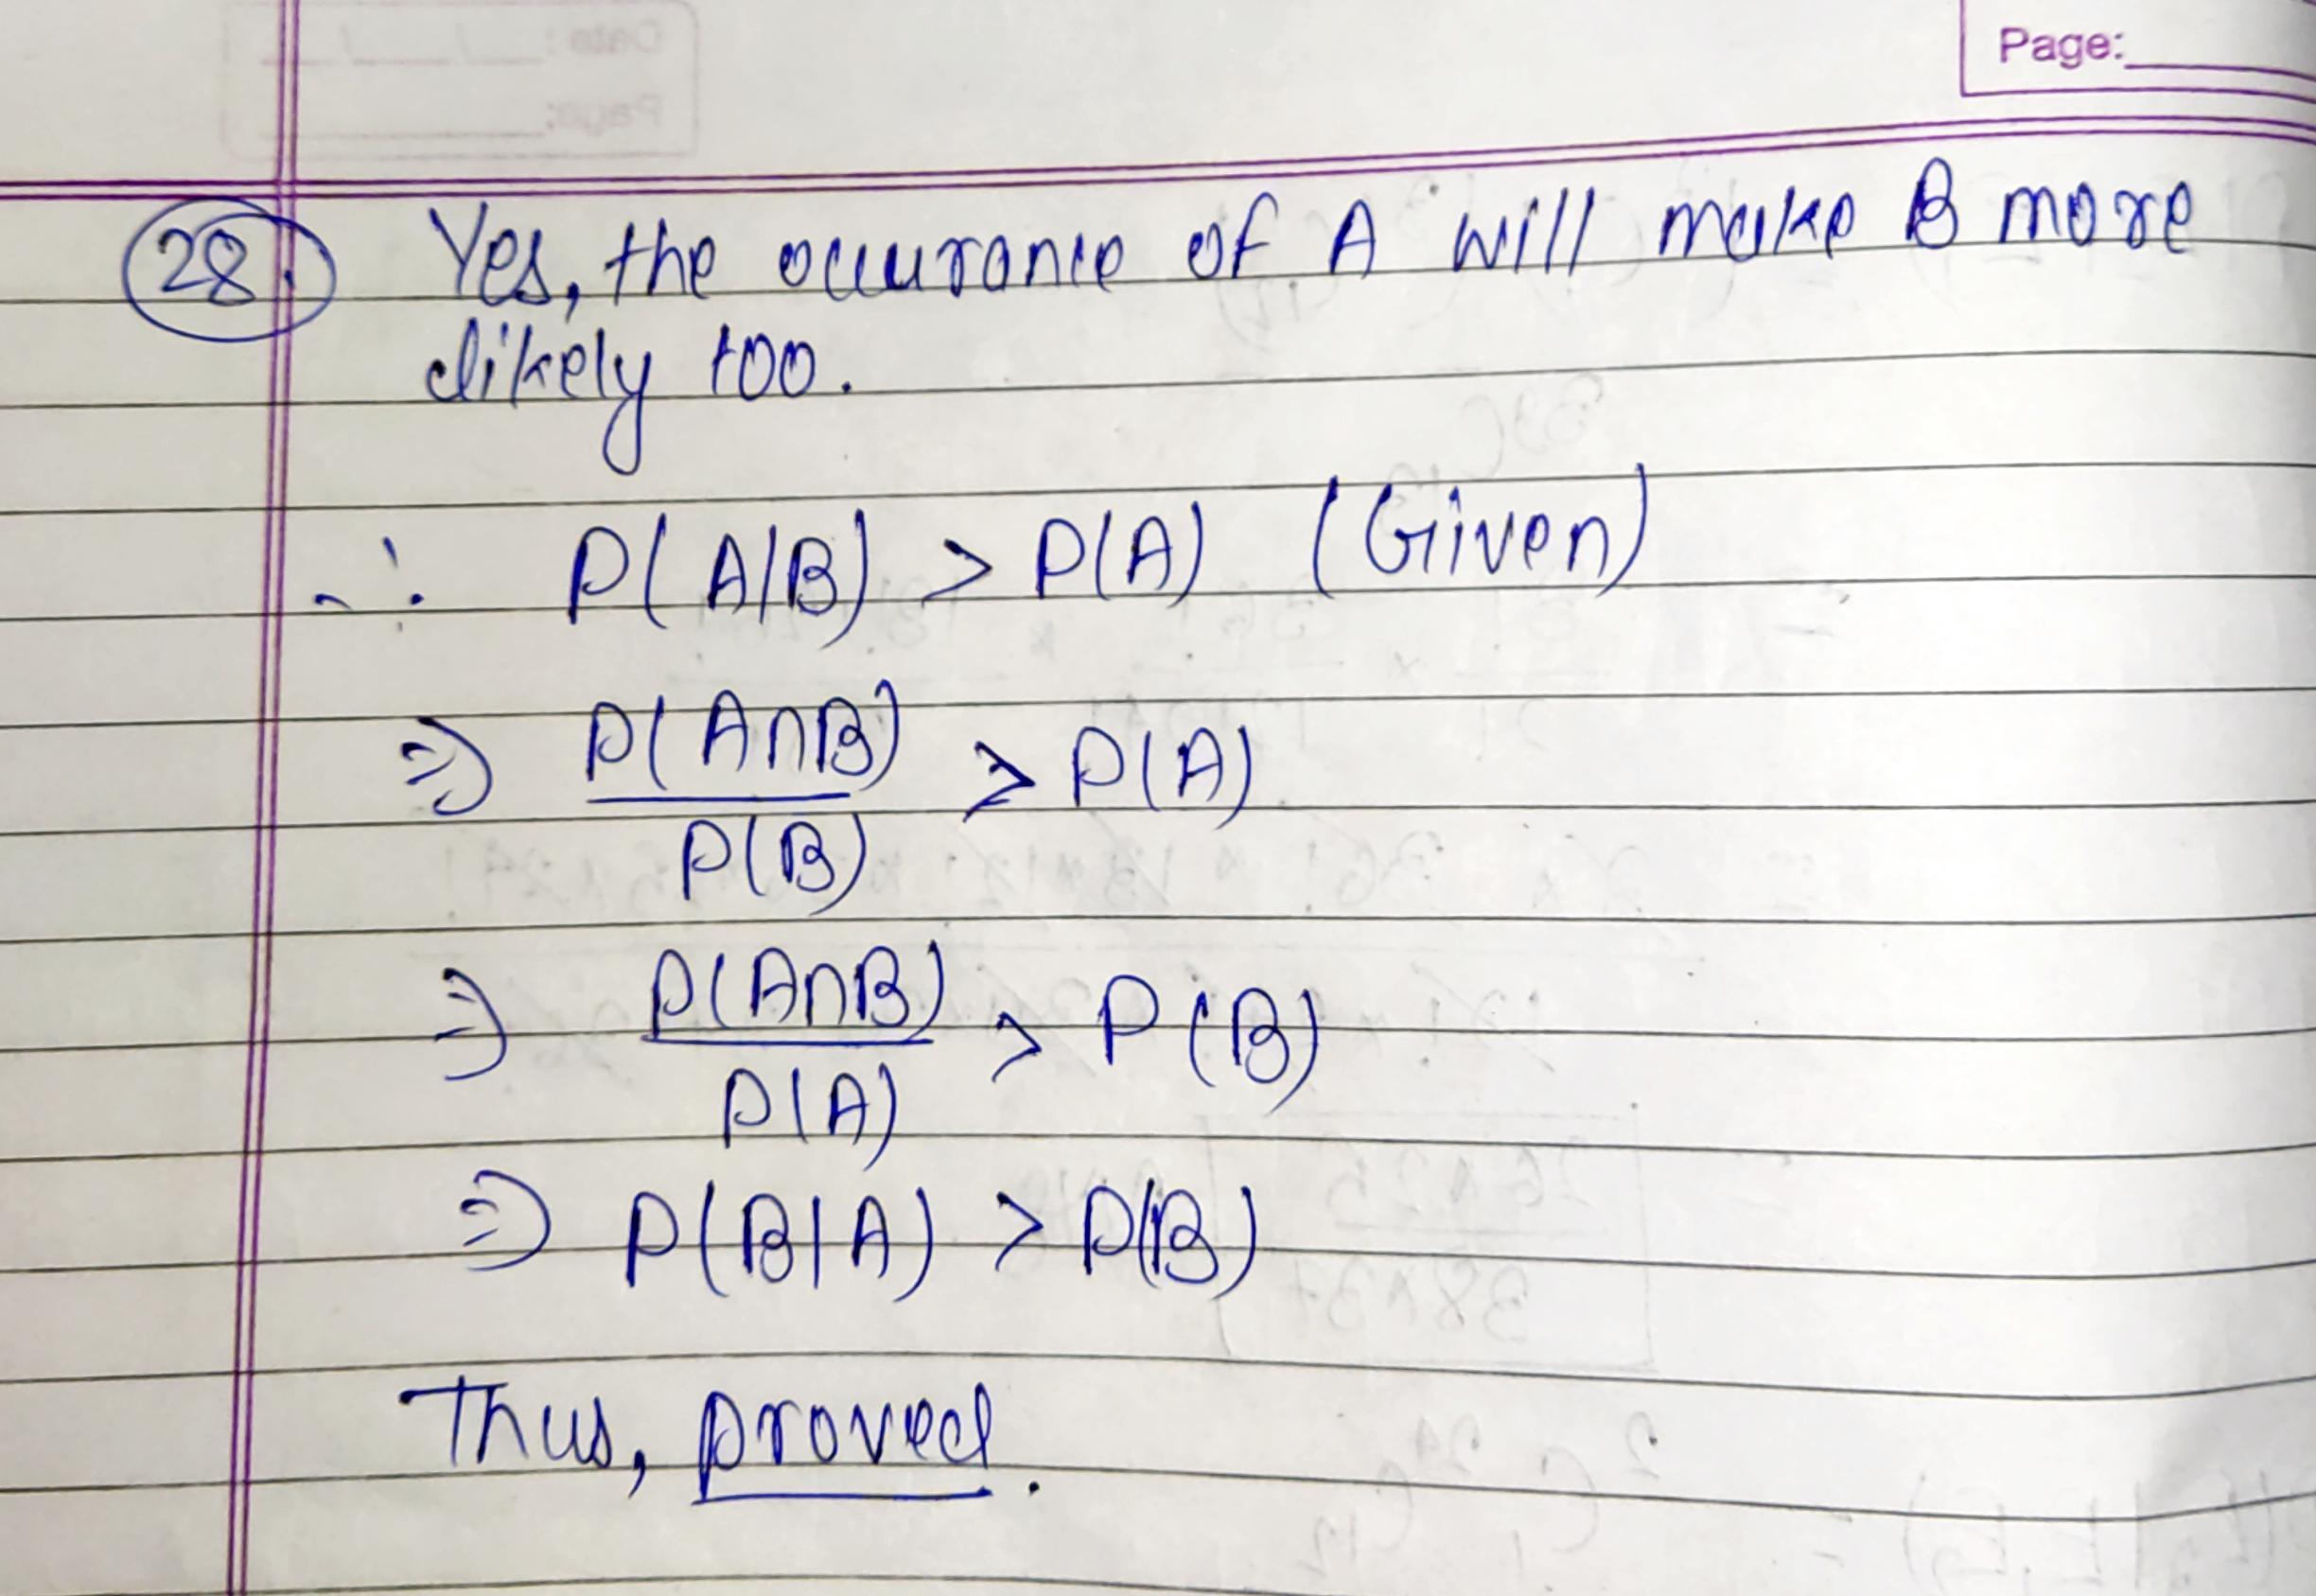 Page:
28. Yes, the occurance of A will make B more
likely too.
∴ P(A|B) > P(A) (Given)
⇒ P(A∩B)/P(B) > P(A)
⇒ P(A∩B)/P(A) > P(B)
⇒ P(B|A) > P(B)
Thus, proved.